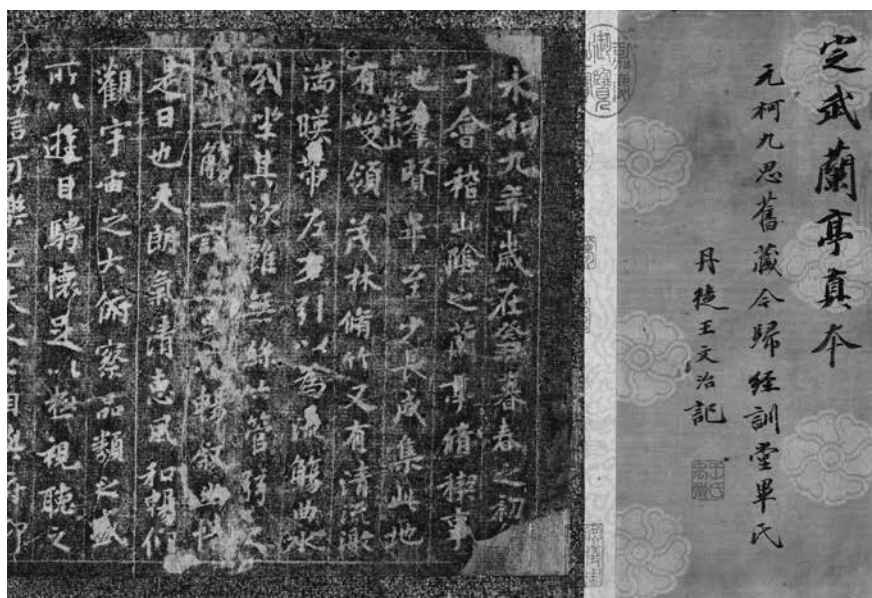 定武蘭亭真本
元柯九思舊藏今歸經訓堂畢氏
丹徒王文治記
嘉慶御覽
永和九年歲在癸丑暮春之初
于會稽山陰之蘭亭脩稧事
也羣賢畢至少長咸集此地
有崇山峻領茂林脩竹又有清流激
湍暎帶左右引以為流觴曲水
列坐其次雖無絲竹管弦之
盛一觴一詠暢叙幽情
是日也天朗氣清惠風和暢仰
觀宇宙之大俯察品類之盛
所以遊目騁懷足以極視聽之
娛信可樂也夫人之相與俯仰